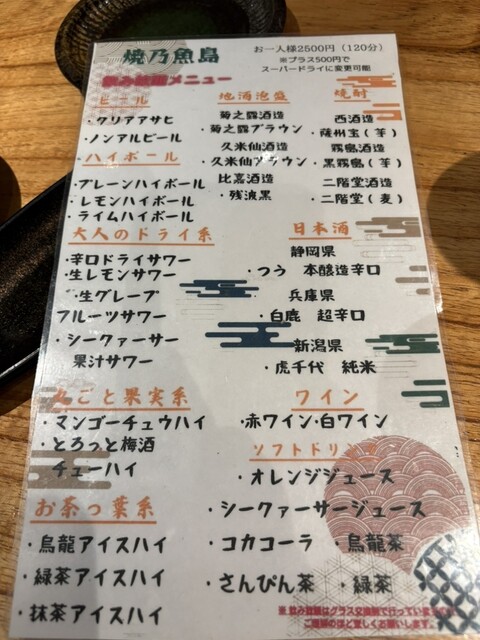 焼乃魚島
お一人様2500円（120分）
※プラス500円で
スーパードライに変更可能
飲み放題メニュー
ビール
・クリアアサヒ
・ノンアルビール
・ハイボール
・プレーンハイボール
・レモンハイボール
・ライムハイボール
大人のドライ系
・辛口ドライサワー
・生レモンサワー
・生グレープ
フルーツサワー
・シークァーサー
果汁サワー
丸ごと果実系
・マンゴーチュウハイ
・とろっと梅酒
チューハイ
お茶っ葉系
・烏龍アイスハイ
・緑茶アイスハイ
・抹茶アイスハイ
地酒泡盛
菊之露酒造
・菊之露ブラウン
久米仙酒造
・久米仙ブラウン
比嘉酒造
・残波黒
焼酎
西酒造
・薩州宝（芋）
霧島酒造
・黒霧島（芋）
二階堂酒造
・二階堂（麦）
日本酒
静岡県
・つう 本醸造辛口
兵庫県
・白鹿 超辛口
新潟県
・虎千代 純米
ワイン
・赤ワイン・白ワイン
ソフトドリンク
・オレンジジュース
・シークァーサージュース
・コカコーラ ・烏龍茶
・さんぴん茶 ・緑茶
※飲み放題はグラス交換制で行っています
ご理解のほど宜しくお願いします。